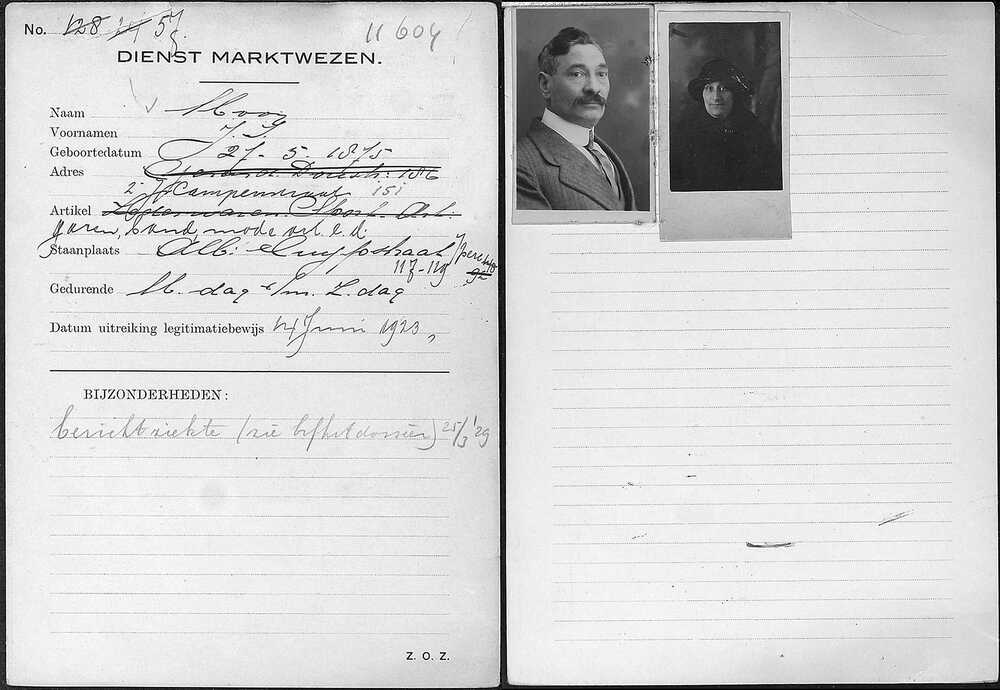 No. 128 57.
11604
DIENST MARKTWEZEN.
Naam Moog
Voornamen J. J.
Geboortedatum 27-5-1875
Adres Gerard Doustr: 186
2e J. v. Campenstraat 151
Artikel
garen, band, mode art. e.d.
Staanplaats Alb: Cuypstraat
117-119
92
Gedurende M.dag t/m. Z.dag
Datum uitreiking legitimatiebewijs 14 Juni 1923,
BIJZONDERHEDEN:
bericht ziekte (zie 25/3 '29
Z. O. Z.